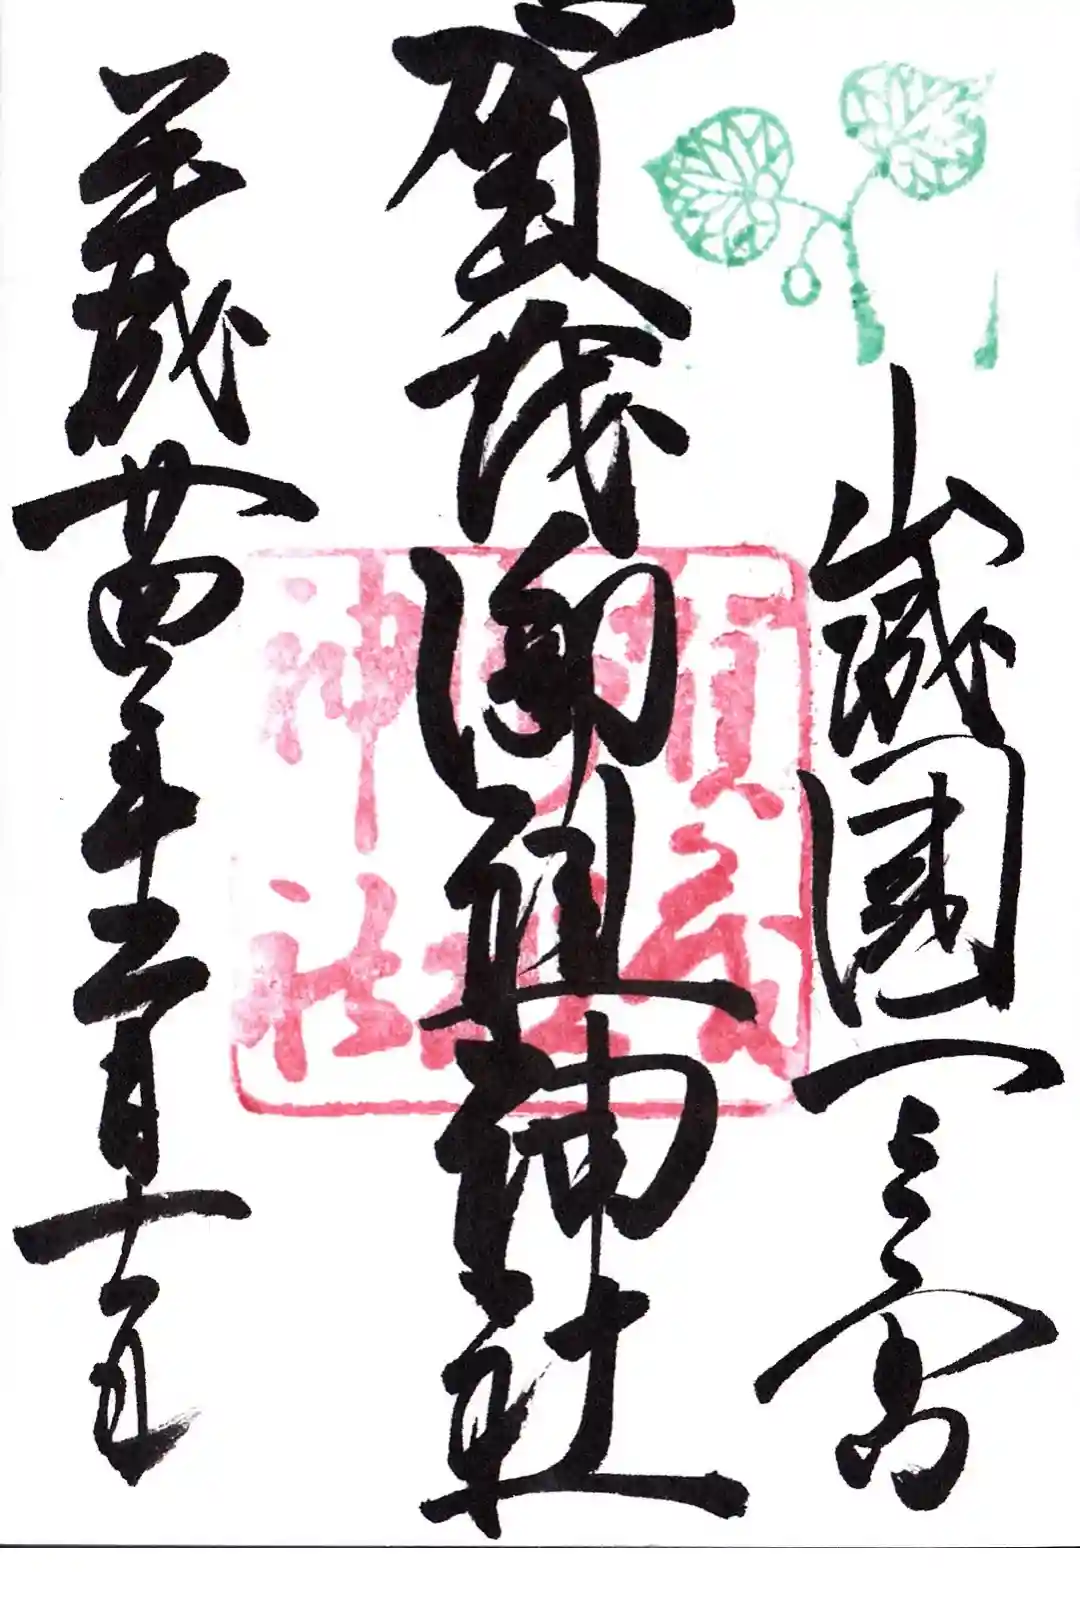 山城國一之宮
賀茂御祖神社
平成廿四年
賀茂
御祖
神社